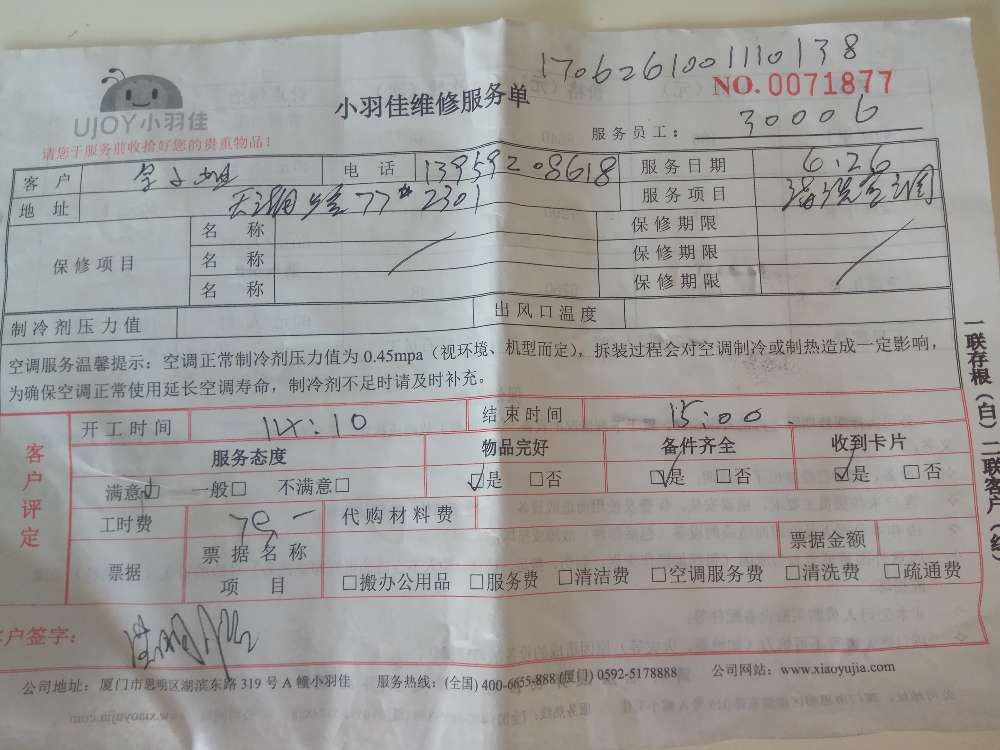 1706261001110138
UJOY小羽佳
小羽佳维修服务单
NO.0071877
请您于服务前收拾好您的贵重物品！
服务员工： 30006
客户 电话 13959208618 服务日期 6.26
地址 77# 2301 服务项目 清洗空调
保修项目 名称 保修期限
名称 保修期限
名称 保修期限
制冷剂压力值 出风口温度
空调服务温馨提示：空调正常制冷剂压力值为 0.45mpa（视环境、机型而定），拆装过程会对空调制冷或制热造成一定影响，
为确保空调正常使用延长空调寿命，制冷剂不足时请及时补充。
一联存根（白）二联客户（红）
客户评定
开工时间 14:10 结束时间 15:00
服务态度 物品完好 备件齐全 收到卡片
满意☑ 一般□ 不满意□ ☑是 □否 ☑是 □否 ☑是 □否
工时费 代购材料费
票据 票据名称 票据金额
项目 □搬办公用品 □服务费 □清洁费 □空调服务费 □清洗费 □疏通费
客户签字：
公司地址：厦门市思明区湖滨东路 319 号 A 幢小羽佳 服务热线：(全国) 400-6655-888 (厦门) 0592-5178888 公司网站：www.xiaoyujia.com